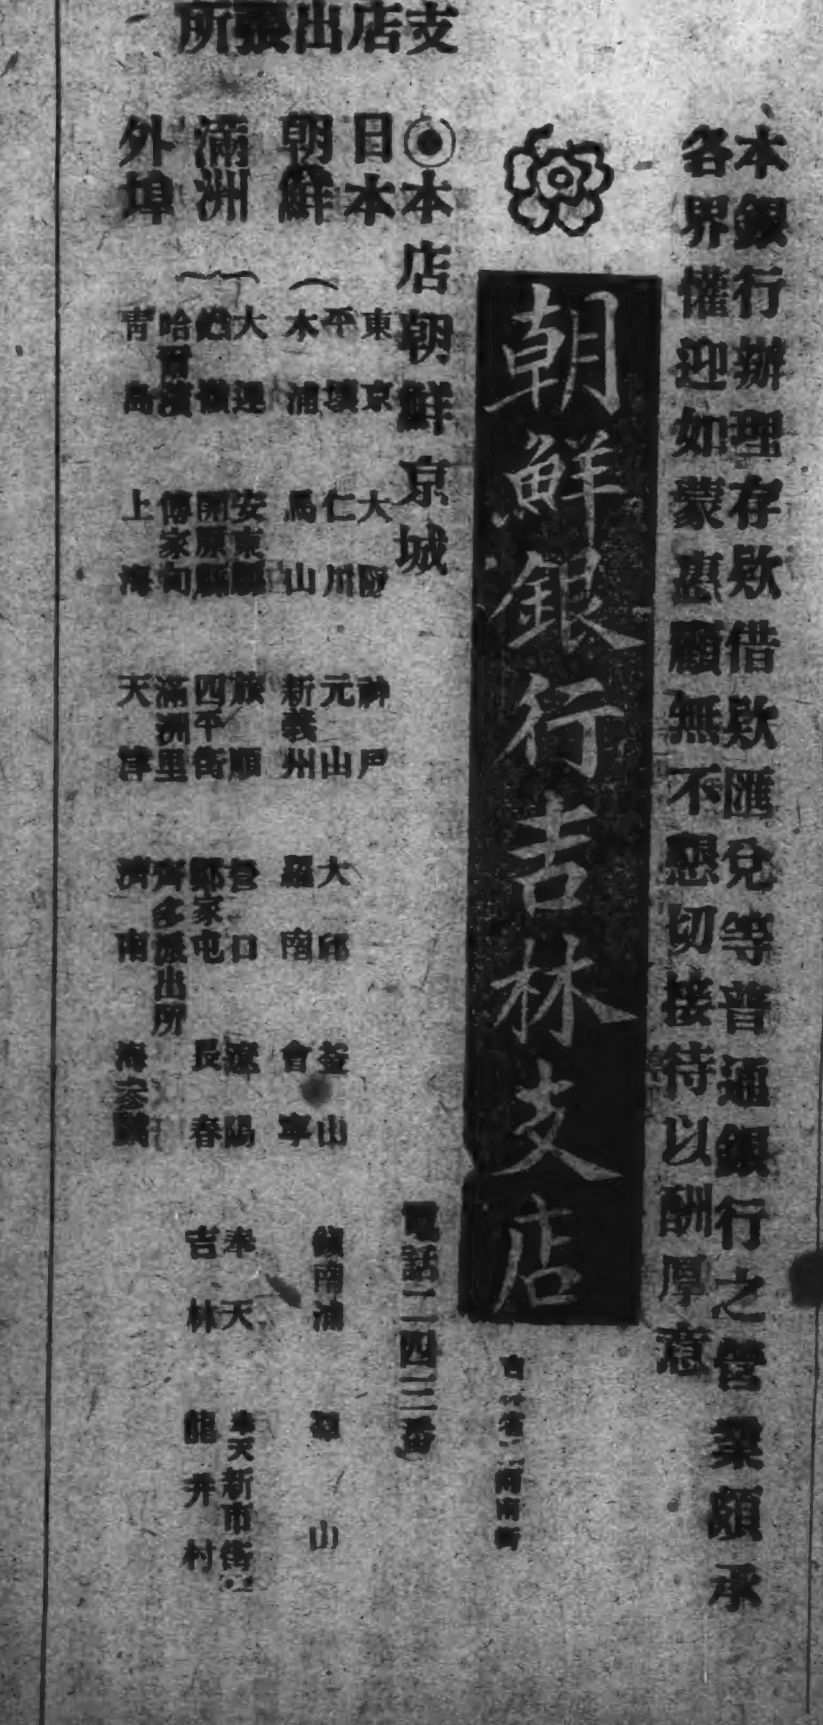 本銀行辦理存欵借欵匯兌等普通銀行之營業頗承
各界懽迎如蒙惠顧無不懇切接待以酬厚意
朝鮮銀行吉林支店
吉林省河南街
◉本店朝鮮京城
電話二四三番
支店出張所
日本 東京 大阪 神戶
朝鮮 平壤 仁川 元山 大邱 釜山 鎮南浦 群山
木浦 馬山 新義州 羅南 會寧
滿洲 大連 安東縣 旅順 營口 遼陽 奉天 奉天新市街
開原縣 四平街 鄭家屯 長春 吉林 龍井村
哈爾濱 傅家甸 滿洲里 齊多派出所
外埠 青島 上海 天津 濟南 海參